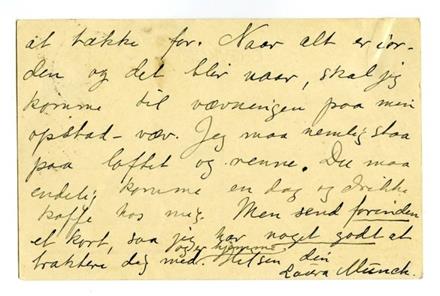 at takke for. Naar alt er i or-
den og det blir vaar, skal jeg
komme til vævningen paa min
opstad-væv. Jeg maa nemlig staa
paa loftet og renne. Du maa
endelig komme en dag og drikke
kaffe hos mig. Men send forinden
et kort, saa jeg har noget godt at
og er hjemme
traktere dig med. Hilsen din
Laura Munch.